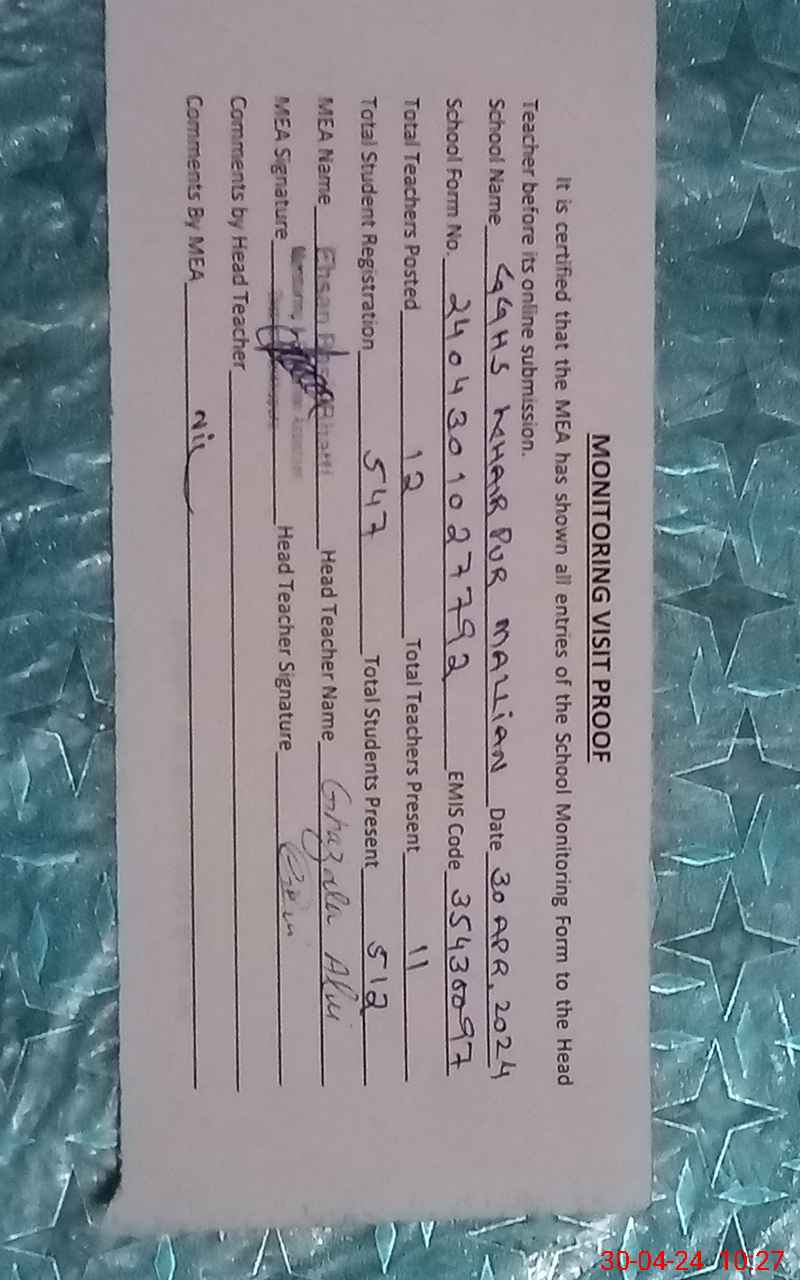 MONITORING VISIT PROOF
It is certified that the MEA has shown all entries of the School Monitoring Form to the Head
Teacher before its online submission.
School Name GGHS KHAIR PUR MALLIAN Date 30 APR, 2024
School Form No. 2404301027792 EMIS Code 35430097
Total Teachers Posted 12 Total Teachers Present 11
Total Student Registration 547 Total Students Present 512
MEA Name Ehsan Bhatti Head Teacher Name Ghazala Alvi
MEA Signature Head Teacher Signature
Comments by Head Teacher
Comments By MEA Nil
30-04-24 10:27